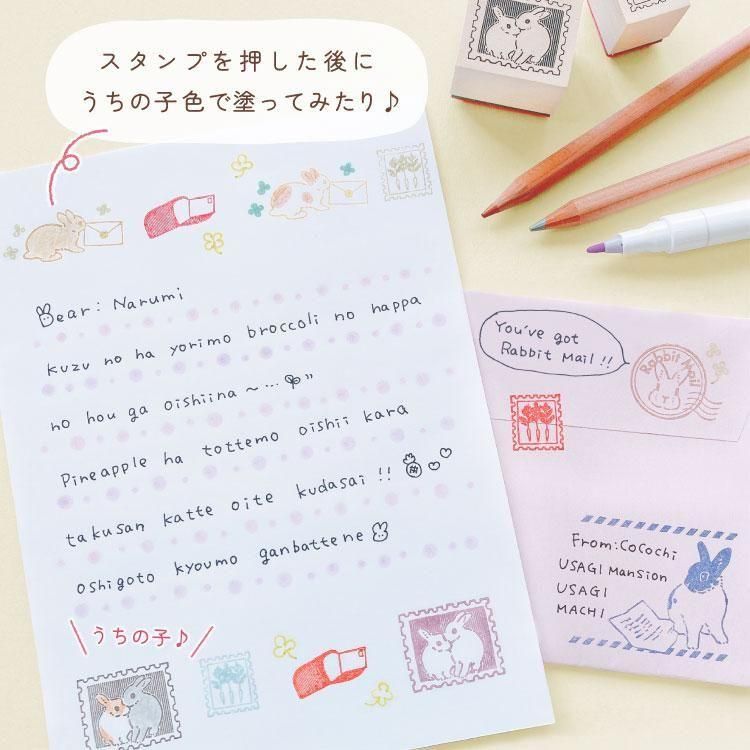 スタンプを押した後に
うちの子色で塗ってみたり♪
Dear: Narumi
kuzu no ha yorimo broccoli no happa
no hou ga oishiina ~ … ”
Pineapple ha tottemo oishii kara
takusan katte oite kudasai !!
oshigoto kyoumo ganbattene
\うちの子♪/
You've got
Rabbit Mail !!
Rabbit Mail
From: CoCochi
USAGI Mansion
USAGI
MACHI